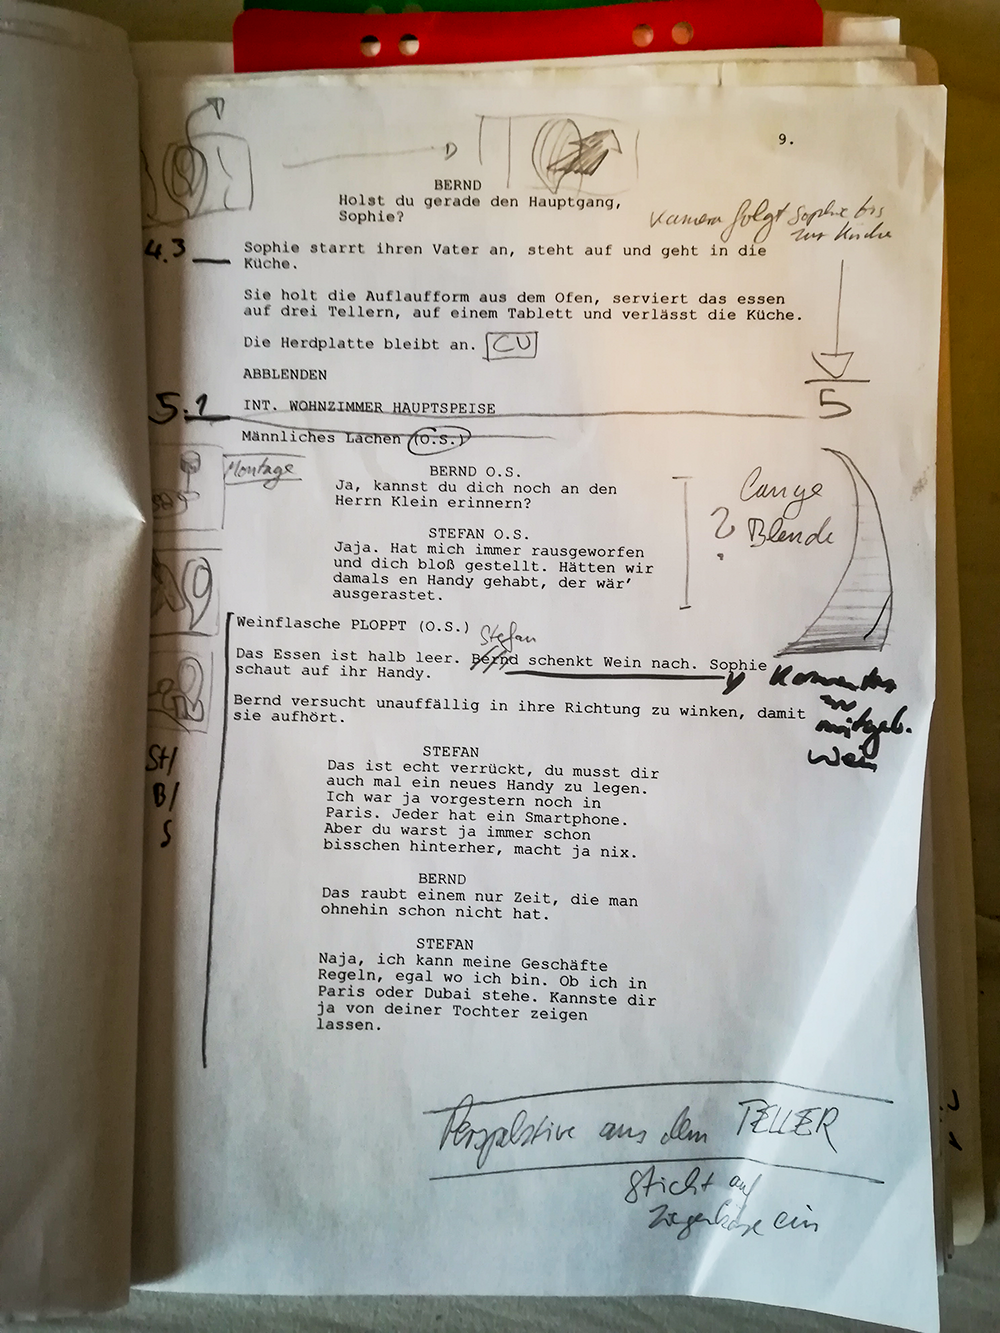 9.
BERND
Holst du gerade den Hauptgang,
Sophie?
Kamera folgt Sophie bis
zur Küche
4.3
Sophie starrt ihren Vater an, steht auf und geht in die
Küche.
Sie holt die Auflaufform aus dem Ofen, serviert das essen
auf drei Tellern, auf einem Tablett und verlässt die Küche.
Die Herdplatte bleibt an. CU
ABBLENDEN
5.1 INT. WOHNZIMMER HAUPTSPEISE
5
Männliches Lachen (O.S.)
Montage
BERND O.S.
Ja, kannst du dich noch an den
Herrn Klein erinnern?
Lange
? Blende
STEFAN O.S.
Jaja. Hat mich immer rausgeworfen
und dich bloß gestellt. Hätten wir
damals en Handy gehabt, der wär'
ausgerastet.
Weinflasche PLOPPT (O.S.)
Stefan
Das Essen ist halb leer. Bernd schenkt Wein nach. Sophie
schaut auf ihr Handy.
Kommentar
zu
mitgeb.
Wein
Bernd versucht unauffällig in ihre Richtung zu winken, damit
sie aufhört.
St/
B/
S
STEFAN
Das ist echt verrückt, du musst dir
auch mal ein neues Handy zu legen.
Ich war ja vorgestern noch in
Paris. Jeder hat ein Smartphone.
Aber du warst ja immer schon
bisschen hinterher, macht ja nix.
BERND
Das raubt einem nur Zeit, die man
ohnehin schon nicht hat.
STEFAN
Naja, ich kann meine Geschäfte
Regeln, egal wo ich bin. Ob ich in
Paris oder Dubai stehe. Kannste dir
ja von deiner Tochter zeigen
lassen.
Perspektive aus dem TELLER
sticht auf
Ziegenkäse ein